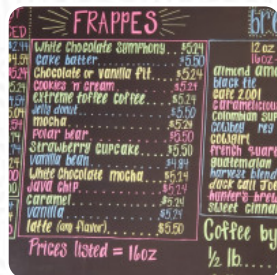 FRAPPES
White Chocolate Symphony...$5.24
Cake batter...$5.50
Chocolate or Vanilla Fit...$5.24
Cookies n cream...$5.24
extreme toffee coffee...$5.24
Jelly donut...$5.50
mocha...$5.24
Polar bear...$5.50
Strawberry Cupcake...$5.50
Vanilla bean...$4.94
White Chocolate mocha...$5.24
Java Chip...$5.24
Caramel...$5.24
Vanilla...$5.24
latte (any flavor)...$5.50
Prices listed = 16oz
12 oz
almond am
black tie
cafe 2001
caramelicio
colombian sup
cowboy
cowgirl
french
guatemalan
harvest blend
Jack
hunter's brew
sweet cinna
Coffee by
½ lb...